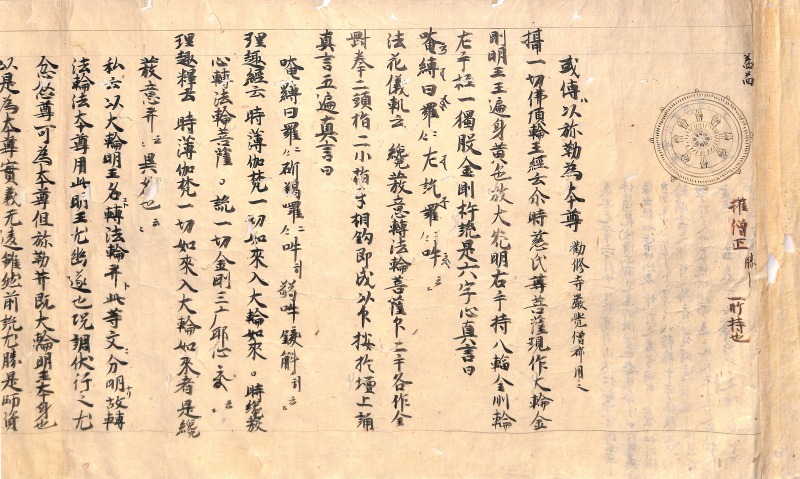 或傳以弥勒為本尊 勧修寺嚴覺僧都用之
攝一切佛頂輪王經云尒時慈氏尊菩薩現作大輪金
剛明王王遍身黄色放大光明右手持八輻金剛輪
左手柱一獨股金剛杵說是六字心真言曰
唵縛日羅 左訖羅 吽
法花儀軌云 纔發意轉法輪菩薩印二手各作金
剛拳二頭指二小指 相鈎即成以印按於壇上誦
真言五遍真言曰
唵 嚩日羅 斫羯羅 吽
理趣經云 時薄伽梵一切如來入大輪如來 時纔發
心轉法輪菩薩 說一切金剛三广耶心
理趣釋云 時薄伽梵一切如來入大輪如來者是纔
發意 異名也
私云以大輪明王名轉法輪 此等文分明故轉
法輪法本尊用此明王尤幽邃也況調伏行之尤
忿怒尊可為本尊但弥勒 既大輪明王本身也
以是為本尊實義无違雖然前說尤勝是師資
權僧正